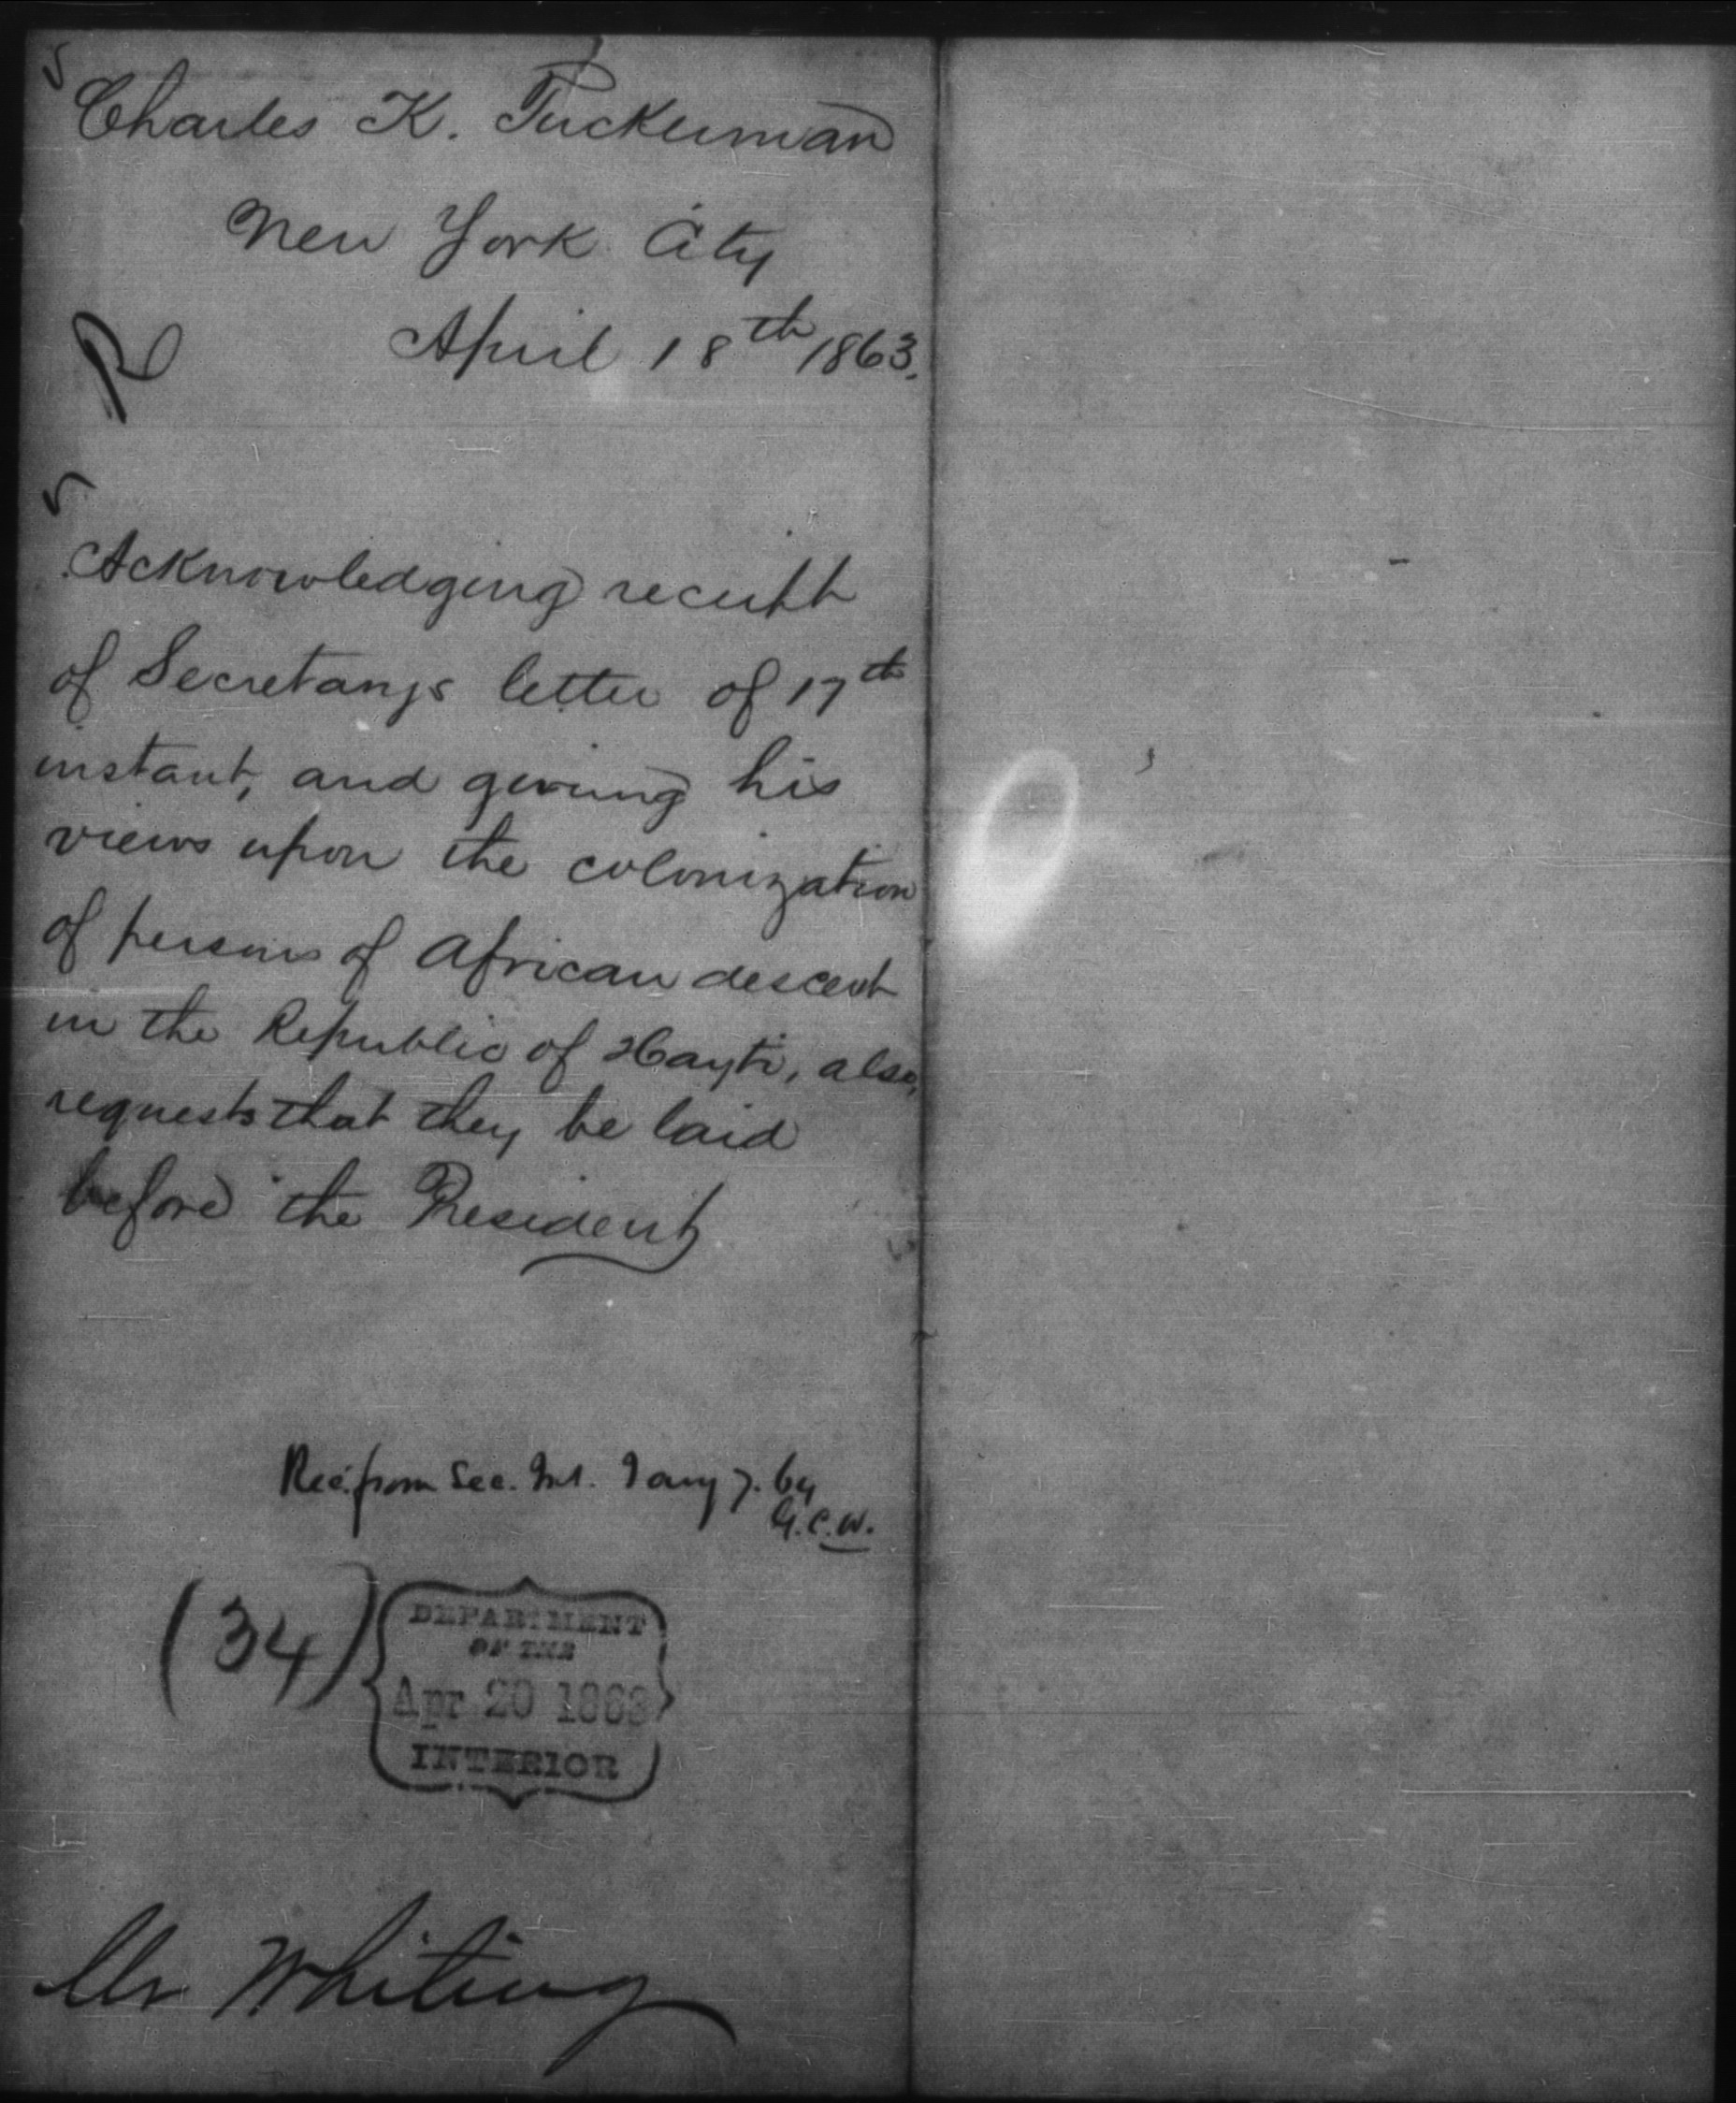 Charles K. Tuckerman
New York City
April 18th 1863.
R
Acknowledging receipt
of Secretarys letter of 17th
instant, and giving his
views upon the colonization
of persons of African descent
in the Republic of Hayti, also,
requests that they be laid
before the President
Rec. from Sec. Int. Jany 7. 64
G.C.W.
(34)
DEPARTMENT
OF THE
Apr 20 1863
INTERIOR
Mr Whiting